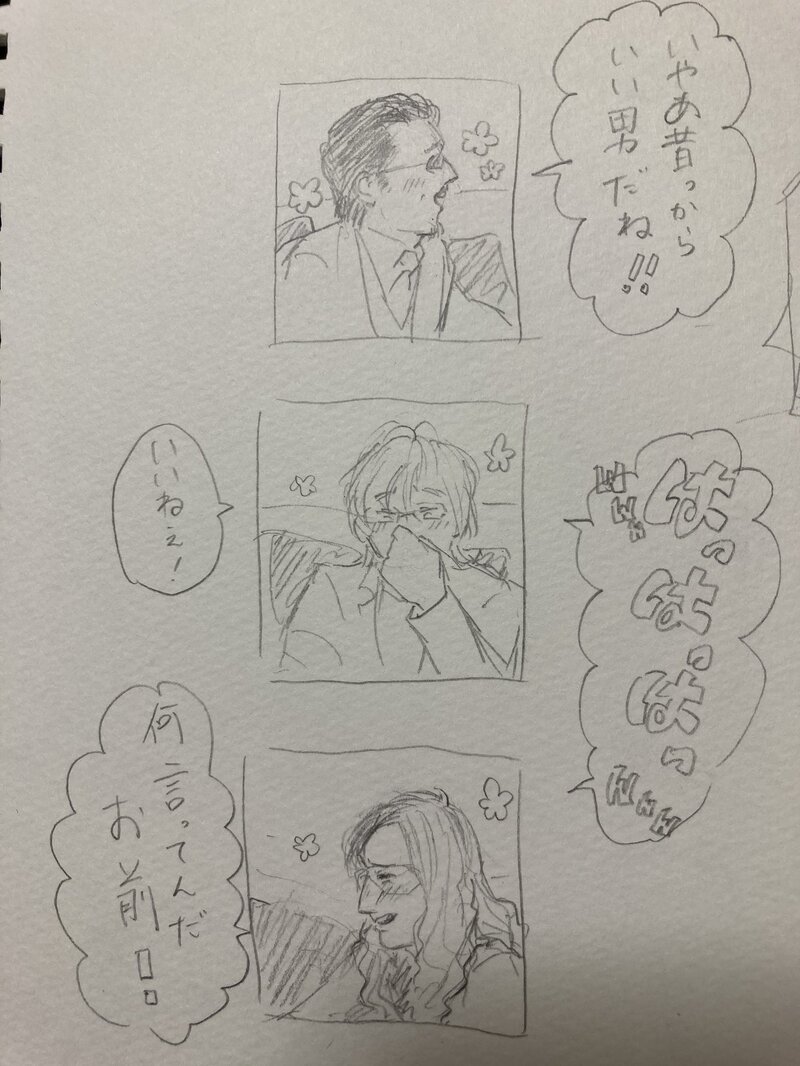 いやあ昔っから
いい男だね!!
はっはっはっ
www
www
いいねぇ!
何言ってんだ
お前!!